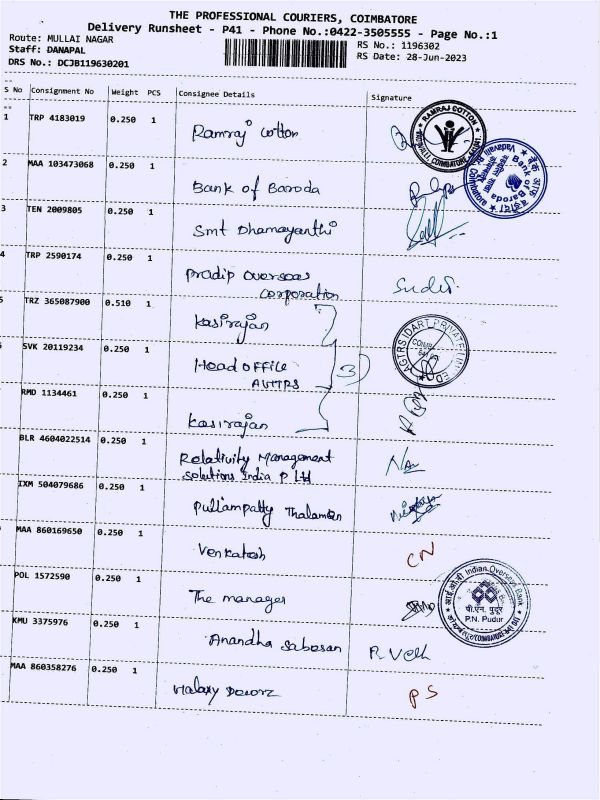 THE PROFESSIONAL COURIERS, COIMBATORE
Delivery Runsheet - P41 - Phone No.:0422-3505555 - Page No.:1
Route: MULLAI NAGAR RS No.: 1196302
Staff: DANAPAL RS Date: 28-Jun-2023
DRS No.: DCJB119630201
S No Consignment No Weight PCS Consignee Details Signature
1 TRP 4183019 0.250 1 Ramraj cotton
RAMRAJ COTTON
2 MAA 103473068 0.250 1 Bank of Baroda
Bank of Baroda
3 TEN 2009805 0.250 1 Smt Dhamayanthi
4 TRP 2590174 0.250 1 Pradip overseas
corporation
5 TRZ 365087900 0.510 1 Kasirajan
SVK 20119234 0.250 1 Head office
3
RMD 1134461 0.250 1 Kasirajan
BLR 4604022514 0.250 1 Relativity Management
Solutions India P Ltd
IXM 504079686 0.250 1 Pullampatty Thalamen
MAA 860169650 0.250 1 Venkatesh CN
POL 1572590 0.250 1 The manager
Indian Overseas Bank
पी.एन. पुदूर
P.N. Pudur
KMU 3375976 0.250 1 Anandha Sabasan
MAA 860358276 0.250 1 PS